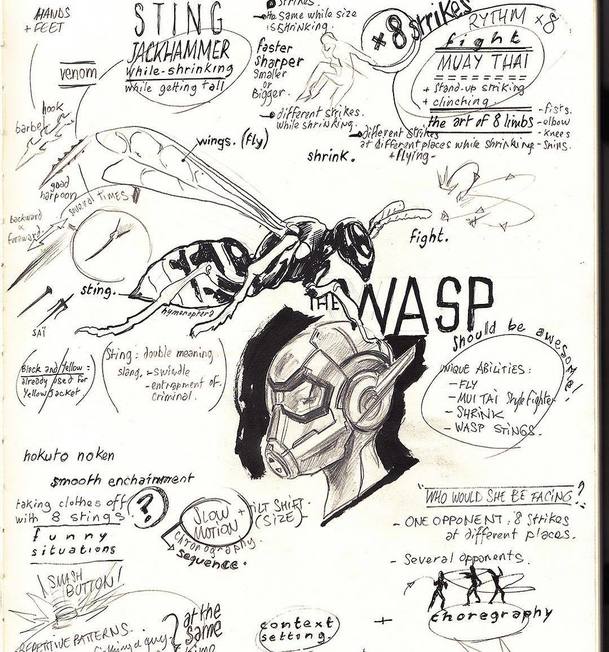 HANDS
+ FEET
STING
JACKHAMMER
while-shrinking
while getting tall
venom
hook
barbe
good
harpoon
several times
backward
&
foreward
sting.
SAÏ
wings. (fly)
hymenoptera
STRIKES.
the same while size
is SHRINKING.
faster
sharper
smaller
or
Bigger.
different strikes.
while shrinking.
shrink.
+8 strikes
RYTHM x8
fight
MUAY THAI
+ stand-up striking
+ clinching.
the art of 8 limbs
- fists.
- elbow
- knees
- shins.
different strikes
at different places while shrinking
+ flying-
fight.
THE WASP
should be awesome!
UNIQUE ABILITIES:
- FLY
- MUI TAI Style fighter
- SHRINK
- WASP STINGS.
Black and Yellow =
already used for
Yellow Jacket
Sting: double meaning
slang, - swindle
- entrapment of
criminal.
hokuto noken
smooth enchainment
taking clothes off
with 8 stings
?
funny
situations
SLOW
MOTION
+ TILT SHIFT
(SIZE)
chronography.
sequence.
"WHO WOULD SHE BE FACING?"
- ONE OPPONENT, 8 strikes
at different places.
- Several opponents.
SMASH
BUTTON!
REPETITIVE PATTERNS.
a guy
?
at the
same
time
context
setting.
+
choregraphy